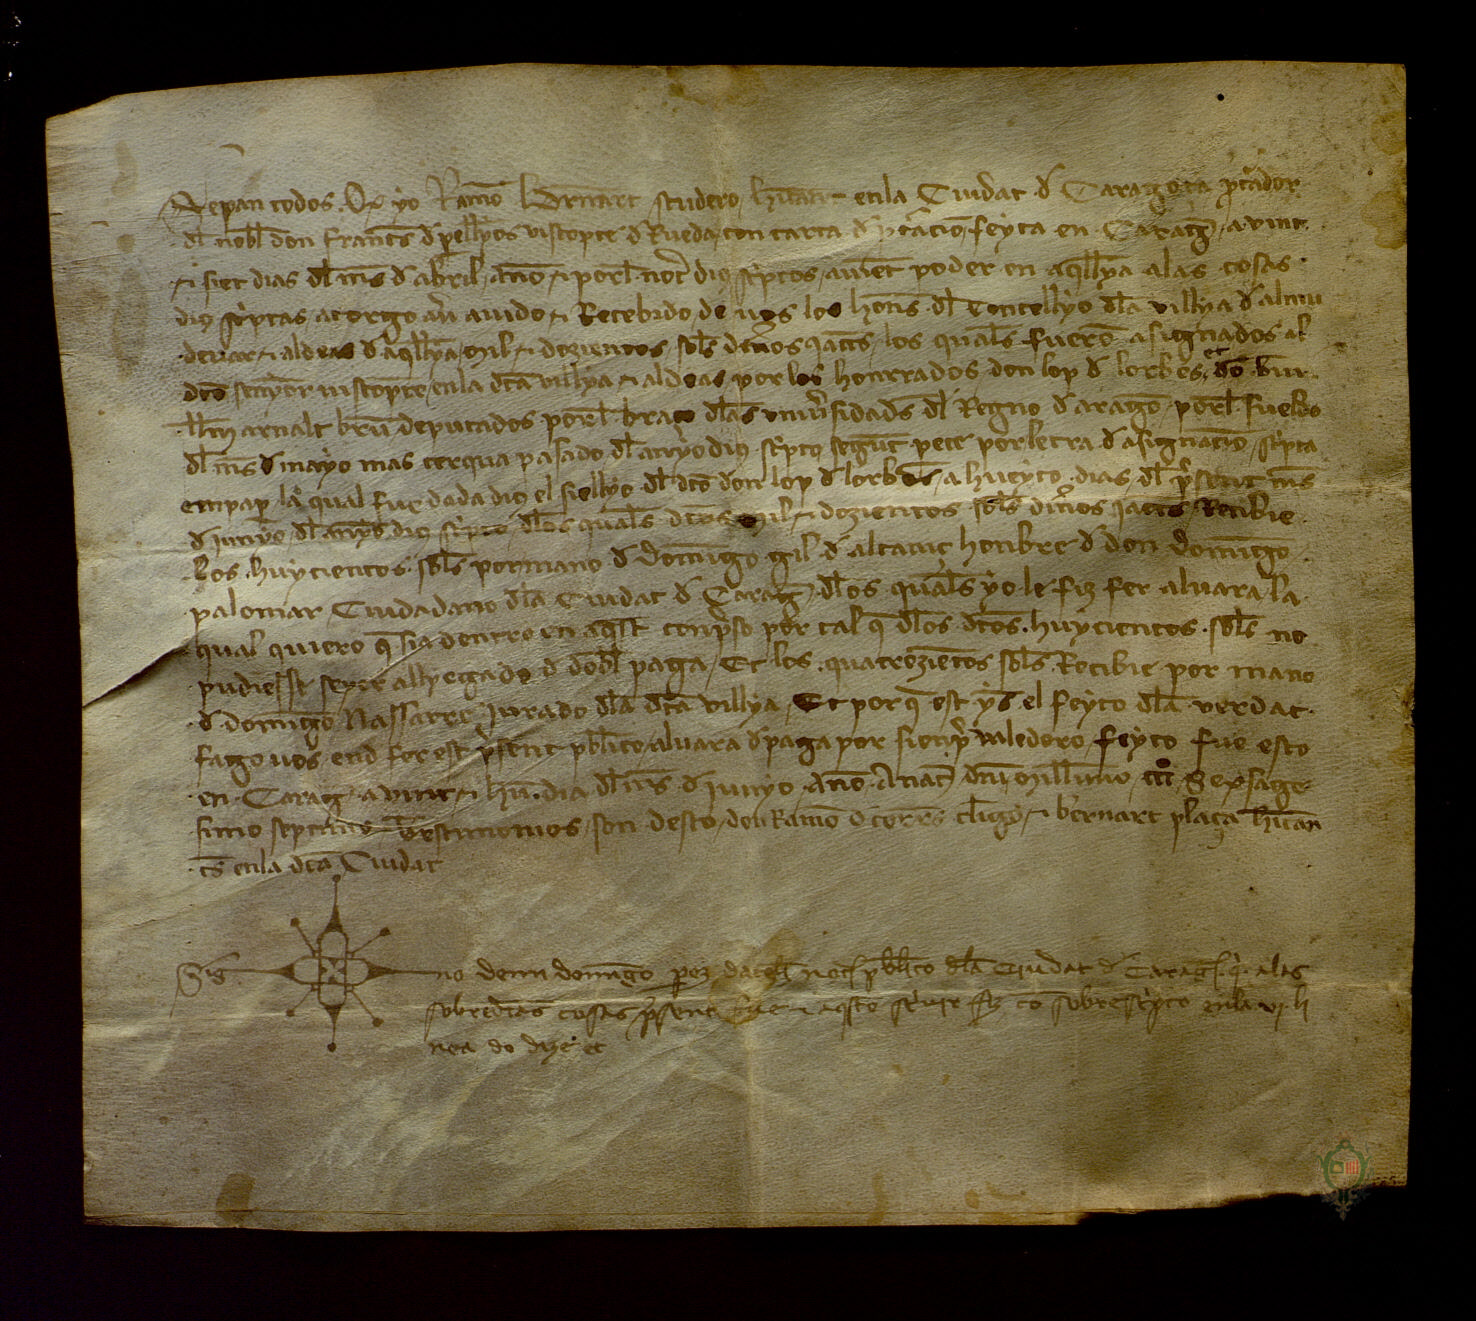 Sepan todos. Q̄ yo Ramō bernart scudero, hītant enla Ciudat d̄ Caragoça p̄curador
dl nobl don Francs̄ d̄ pellyos viscopte d̄ Rueda, con carta d̄ p̄curacio feyta en Caraḡ a vint
⁊ siet dias dl ms̄ d abril, año ⁊ porl not̄ dius sc̄ptos, auiet poder en aqllya a las cosas
dius sc̄ptas atorgo auer auido ⁊ Recebido de uos los hōns dl Concellyo dla villya d
⁊ aldeas d aqllya, Mil ⁊ dozientos sols dineros jaccs, los quals fuerō asignados al
dc̄o senyor viscopte, enla dc̄a villya ⁊ aldeas por los honrrados don lop d lorbes, et dō
arnalt brū deputados porl braço dlas vniūsidads dl Regno d aragō, porl sueldo
dl ms̄ d mayo mas cerqua pasado dl anyo dius sc̄pto, segūt pece por letra d asignacio, sc̄pta
en pap̄, la qual fue dada dius el siellyo dl dc̄o don lop d lorbes, a hueyto dias dl p̄sent ms̄
d junyo, dl anyo dius sc̄pto, dlos quals dc̄os Mil ⁊ dozientos sols dineros jaccs, Recibie
los huycientos sols por mano d Domīgo gil d alcanic honbre d don Domīgo
palomar Ciudadano dla Ciudat d Caraḡ dlos quals yo le fiz fer aluara la
qual quiero q̄ sia dentro en aq̄st conp̄so por tal q̄ dlos dc̄os huycientos sols no
pudiesse seyer allyegado d dobl paga, Et los quatrozientos sols Recibie por mano
d domīgo Nassarre Jurado dla dc̄a villya, Et por q̄ est ys el feyto dla verdat
fago uos end fer est p̄sent publico aluara d paga por sienp̄ valedero, feyto fue esto
en Caraḡ a vint ⁊ hū dia dl ms̄ d junyo, Año A nat̄ dnī Millimo, CCC, Sexsage
simo septimo, Testimonios son desto, don Ramō d torrs clīgo, ⁊ bernart plaça hītan
ts̄ enla dc̄a Ciudat
Sig no demi domīgo pez not̄ publico dla Ciudat d Caraḡ q̄ alas
sobredc̄as cosas p̄sent fue ⁊ aqsto sc̄uir fiz cō sobrescripto enla vi li
nea do dize et